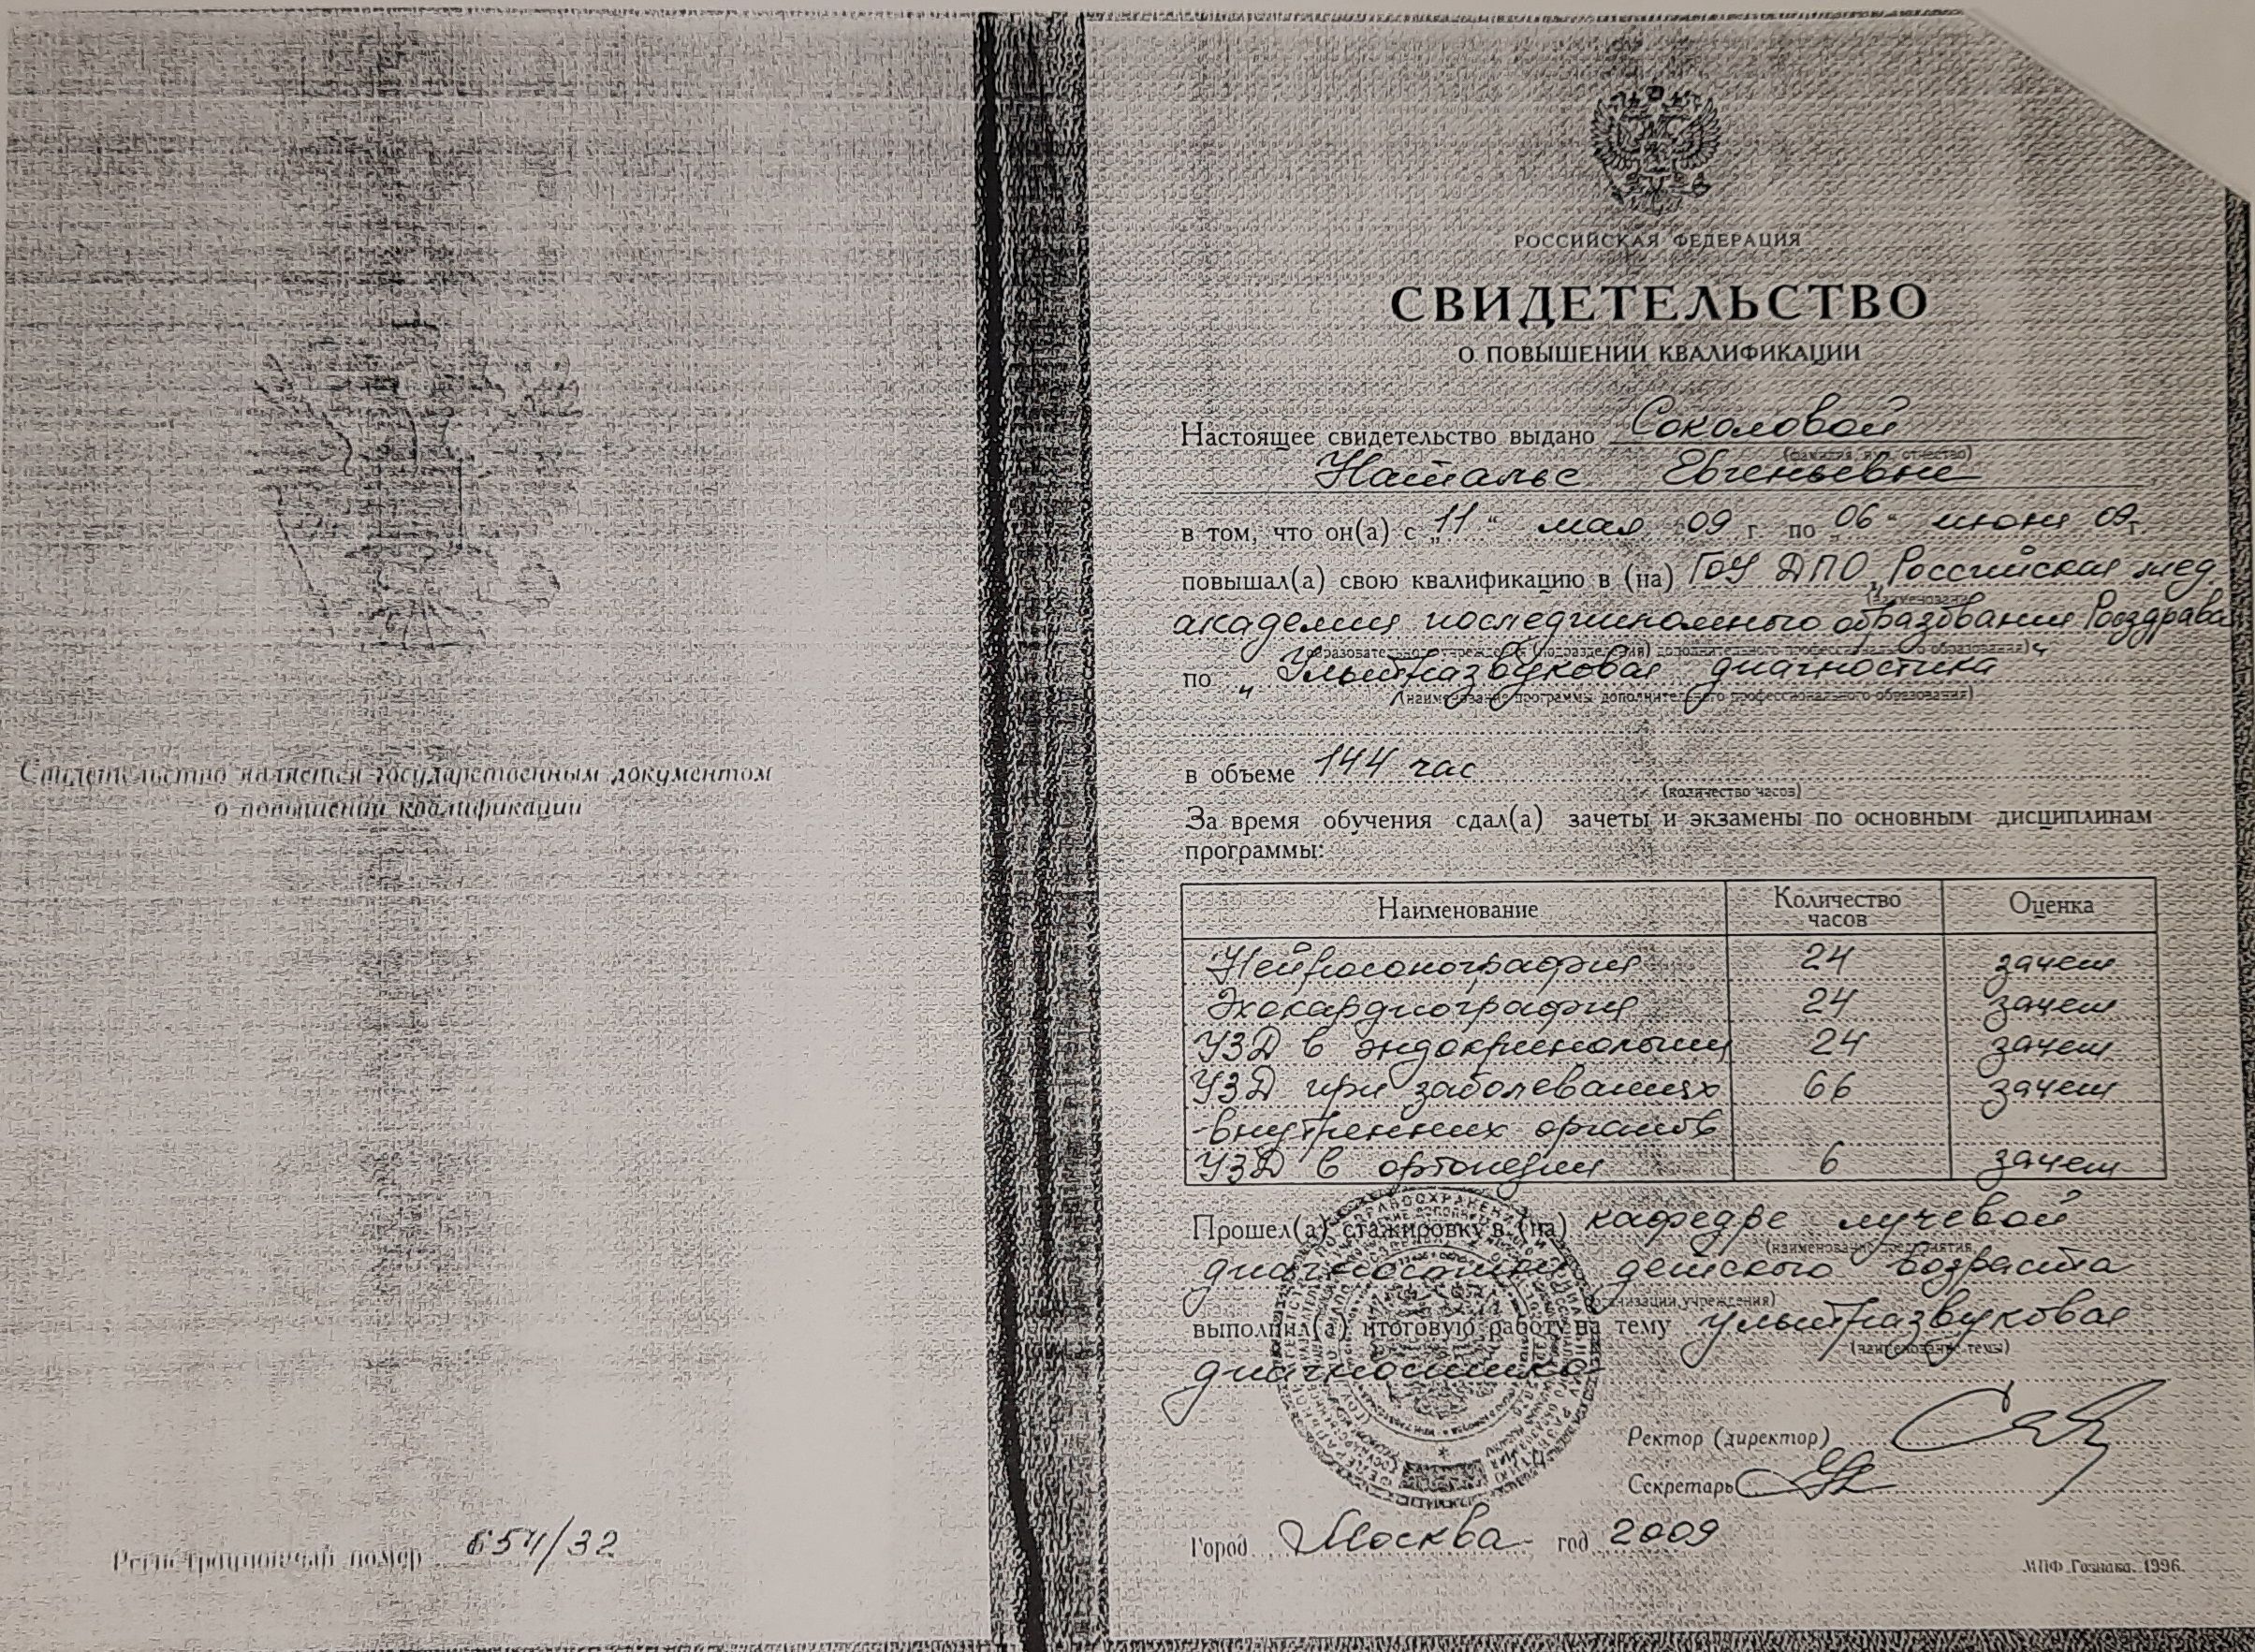 Свидетельство является государственным документом
о повышении квалификации
Регистрационный номер 654/32
РОССИЙСКАЯ ФЕДЕРАЦИЯ
СВИДЕТЕЛЬСТВО
О ПОВЫШЕНИИ КВАЛИФИКАЦИИ
Настоящее свидетельство выдано Соколовой
(фамилия, имя, отчество)
Наталье Евгеньевне
в том, что он(а) с „11“ мая 09 г. по „06“ июня 09 г.
повышал(а) свою квалификацию в (на) ГОУ ДПО „Российская мед.
(наименование
академия последипломного образования Росздрава
образовательного учреждения (подразделения) дополнительного профессионального образования)“
по „Ультразвуковая диагностика
(наименование программы дополнительного профессионального образования)
в объеме 144 час
(количество часов)
За время обучения сдал(а) зачеты и экзамены по основным дисциплинам
программы:
Наименование Количество часов Оценка
Нейросонография 24 зачет
Эхокардиография 24 зачет
УЗД в эндокринологии 24 зачет
УЗД при заболеваниях 66 зачет
внутренних органов
УЗД в ортопедии 6 зачет
Прошел(а) стажировку в (на) кафедре лучевой
(наименование предприятия,
диагностики детского возраста
организации, учреждения)
выполнил(а) итоговую работу на тему ультразвуковая
(наименование темы)
диагностика
Ректор (директор)
Секретарь
Город Москва год 2009
МПФ Гознака. 1996.